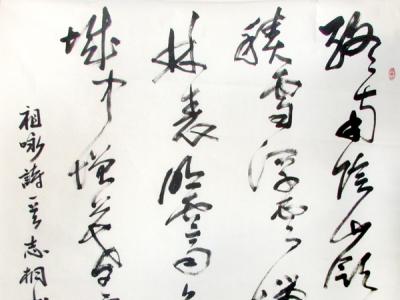 終南陰嶺
積雪浮雲端
林表明霽色
城中增暮寒
祖咏詩志桐